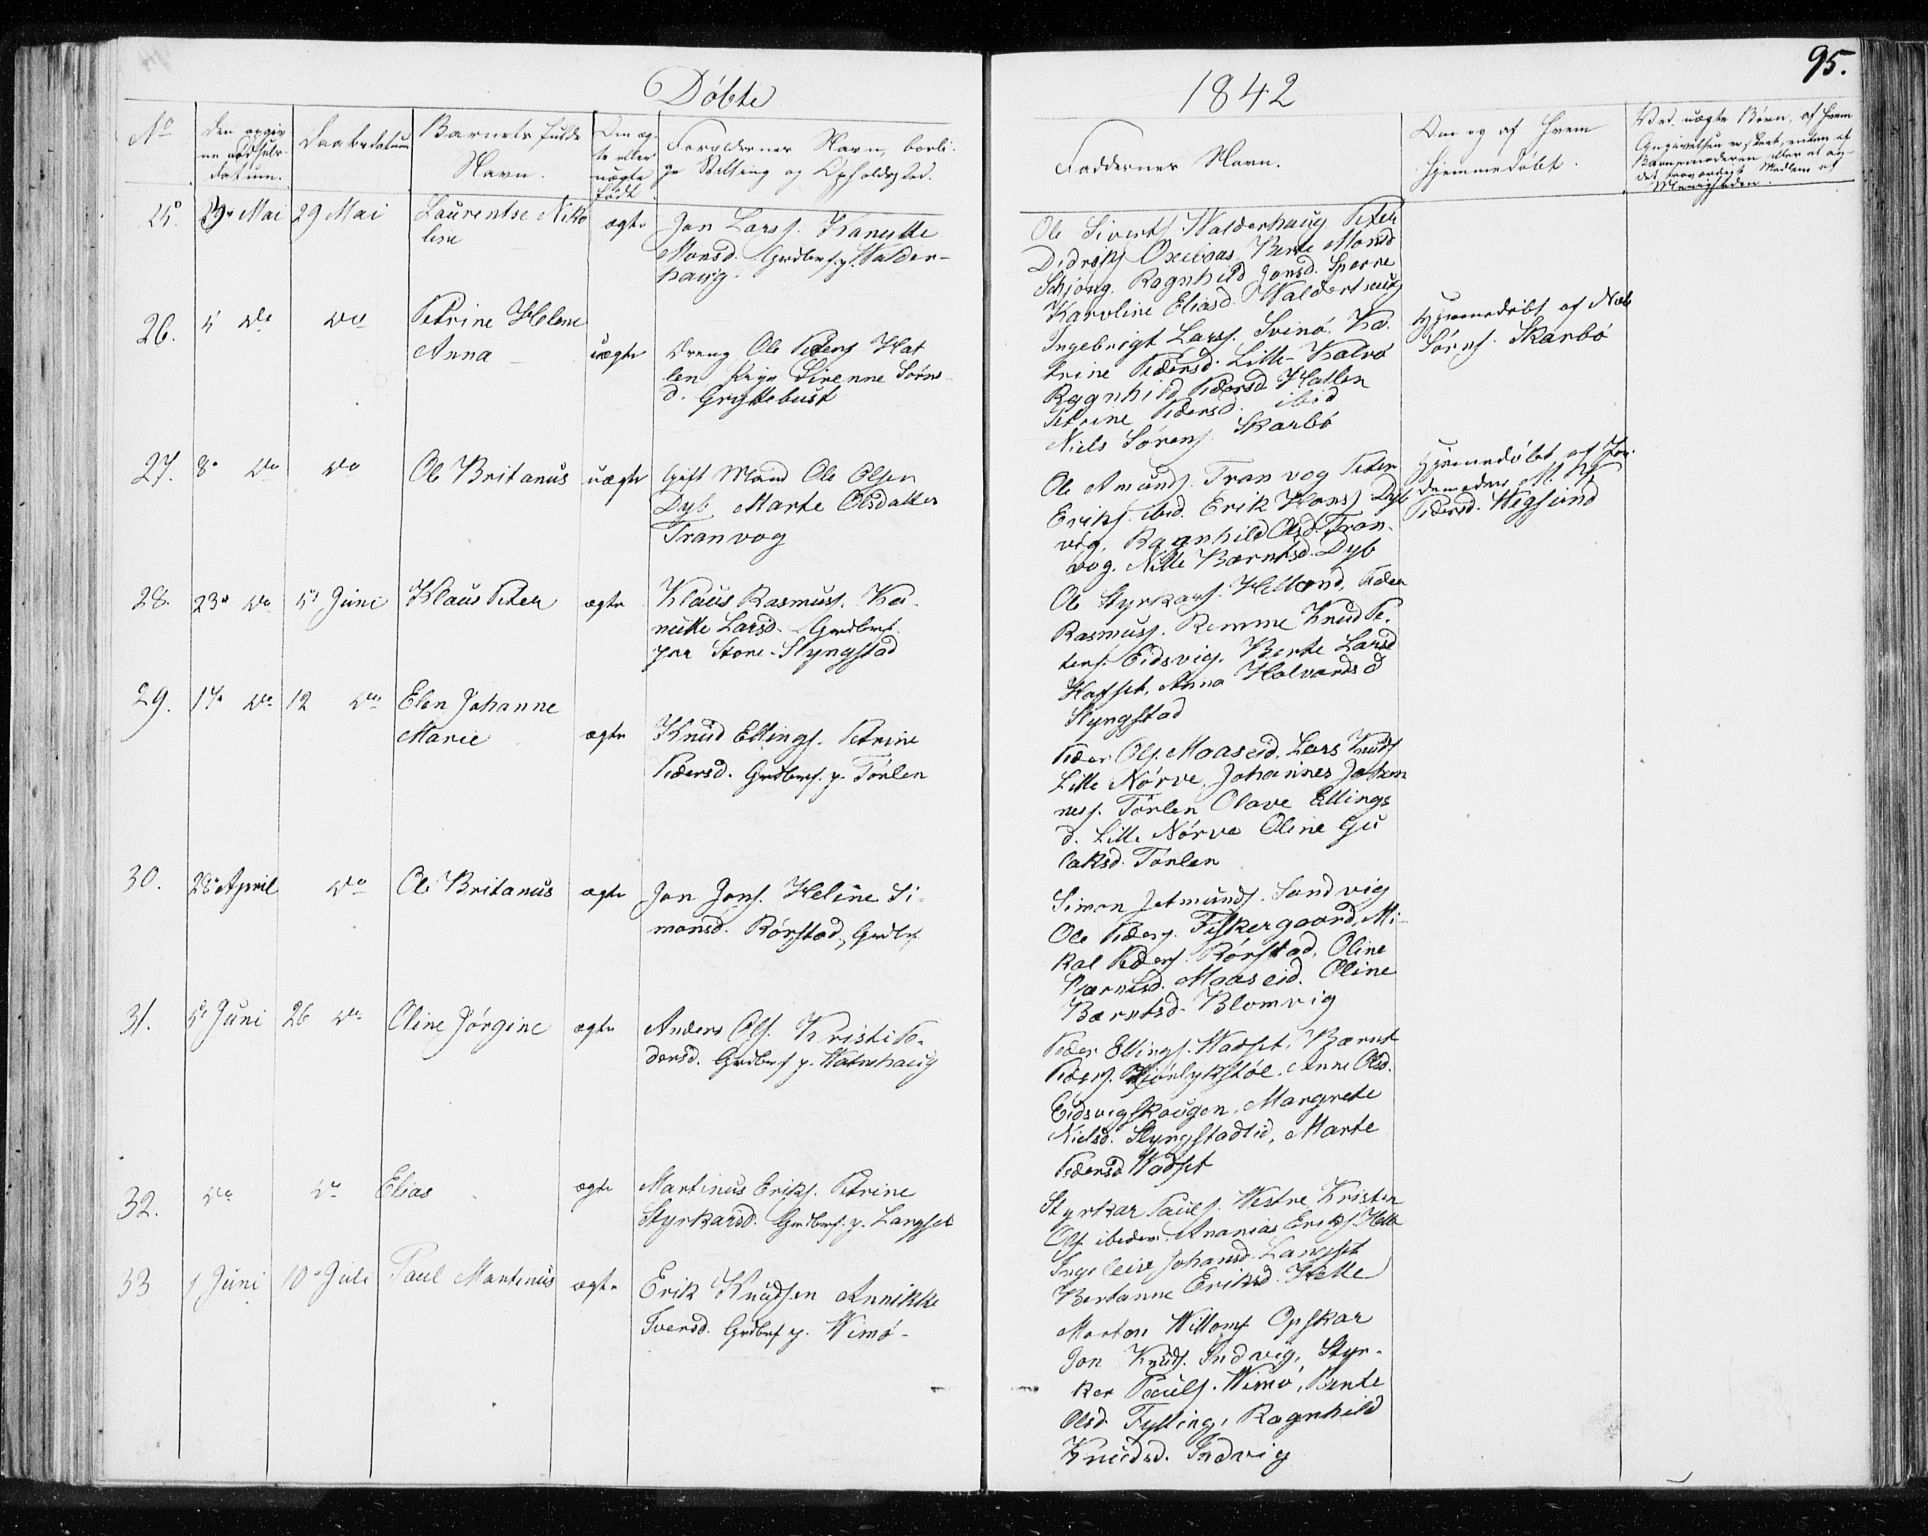 95.
Døbte
1842
No
Den opgiv
ne Fødsels-
datum.
Daabsdatum
Barnets fulde
Navn.
Om æg-
te eller
uægte
født
Forældrenes Navn, borli-
ge Stilling og Opholdssted.
Faddernes Navn.
Om og af hvem
hjemmedøbt.
Ved uægte Børn, af hvem
Angivelsen er skeet, enten af
Barnemoderen eller et an-
det troværdigt Medlem af
Menigheden.
25. Mai 29 Mai Laurentse Niko
line
ægte Jon Larss. Kanutte
Monsd. Grdbrf. p. Walder-
haug.
Ole Siverts. Walderhaug Peter
Didriks. Oxevaas, Berte Monsd
Schjong. Ragnhild Jonsd. Sperre
Karoline Eliasd. Walderhaug
26. 5 do do Petrine Helene
Anna
uægte Dreng Ole Peders. Hat
len Pige Sirenne Sørns-
d. Gryttebust
Ingebrigt Larss. Svinø. Ka-
trine Pedersd. Lille-Kalvø
Ragnhild Pedersd Hatlen
Petrine Pedersd. ibid
Niels Sørens. Skarbø
Hjemmedøbt af Niels
Sørns. Skarbø
27. 8 do do Ole Britanus uægte Gift Mand Ole Olsen
Dyb Marte Olsdatter
Tranvog
Ole Amunds. Tranvog Peter
Eriks. ibid. Erik Hanss. Dyb
vig, Ragnhild Olsd. Tran-
vog. Nille Bærntsd. Dyb
Hjemmedøbt af Jor-
demoder M.
Pedersd. Wigsund
28. 23 do 5 Juni Klaus Peter ægte Klaus Rasmuss. Ka-
nutte Larsd. Grdbrf.
paa Store-Slyngstad
Ole Styrkars. Helland, Peder
Rasmuss. Remme Knud Pe-
ters. Eidsvig. Berte Larsd
Hafset, Anna Halvardsd
Slyngstad
29. 17 do 12 do Elen Johanne
Marie
ægte Knud Ellings. Petrine
Pedersd. Grdbrf. p. Tørlen
Peder Ols. Maaseid. Lars Knuds
Lille Nørve. Johannes Johan
ness. Tørlen Olave Ellings
d. Lille Nørve Oline Gu
laksd. Tørlen
30. 28 April do Ole Britanus ægte Jon Jons. Heline Si-
monsd. Rørstad, Grdbrf.
Simon Jetmunds. Sandvig
Ole Peders. Fiskergaard. Mi-
kal Peders. Rørstad. Oline
Bærntsd. Maaseid. Oline
Bærntsd. Blomvig
31. 5 Juni 26 do Oline Jørgine ægte Anders Ols. Kristi Pe-
dersd. Grdbrf p. Watnehaug
Peder Ellings. Wadset, Bærnt
Peders. Anne Olsd.
Eidsvigskougen. Margrete
Nielsd. Slyngstadlid, Marte
Pedersd Wadset
32. do do Elias ægte Martinus Eriks. Petrine
Styrkarsd. Grdbrf. p. Langset
Styrkar Pauls. Westre Kristen
Ols. ibidem. Ananias Eriks. Helle
Ingeleiv Johansd. Langset
Bertanne Eriksd. Helle
33 1 Juni 10 Juli Paul Martinus ægte Erik Knudsen Annikke
Iversd. Grdbrf p. Wimø-
Morten Willoms. Opskar
Jon Knuds. Indvig, Styr-
ker Pauls. Wimø, Bente
Olsd Fylling, Ragnhild
Knudsd. Indvig